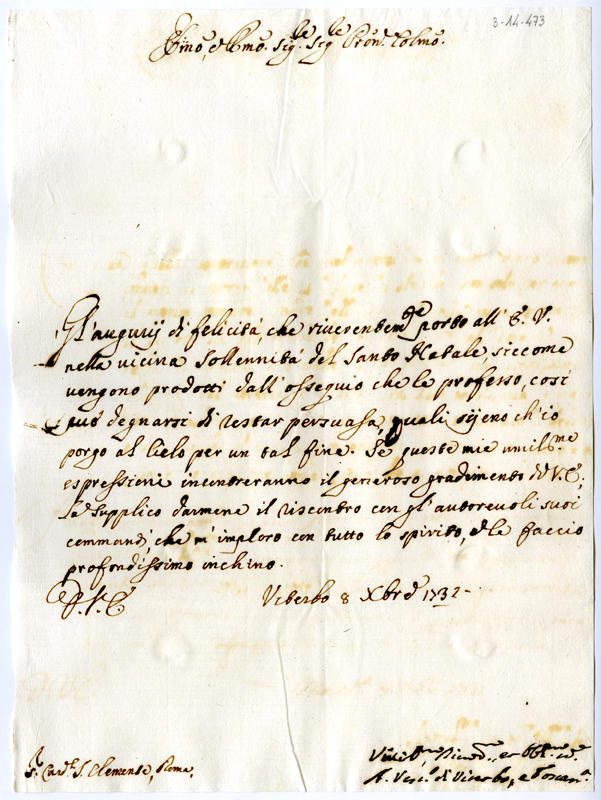 3-14-473
Em̃o, e Rm̃o. Sig.re Sig.re Pron̄. Colmo.
Gl'augurij di felicità, che riverentem.te porto all' E. V.
nella vicina Sollennità del Santo Natale, siccome
vengono prodotti dall'ossequio che le professo, così
può degnarsi di restar persuasa, quali sijeno ch'io
porgo al Cielo per un tal fine. Se queste mie umil.me
espressioni incontreranno il generoso gradimento di V.E.,
la supplico darmene il riscontro con gl'autorevoli suoi
commandi, che m'imploro con tutto lo spirito, e le faccio
profondissimo inchino.
D. V. E.
Viterbo 8 Xbre 1732
S.r Card.l S. Clemente, Roma.
Umil.mo et Obl.mo
A. Vesc.o di Viterbo, e Toscan.a